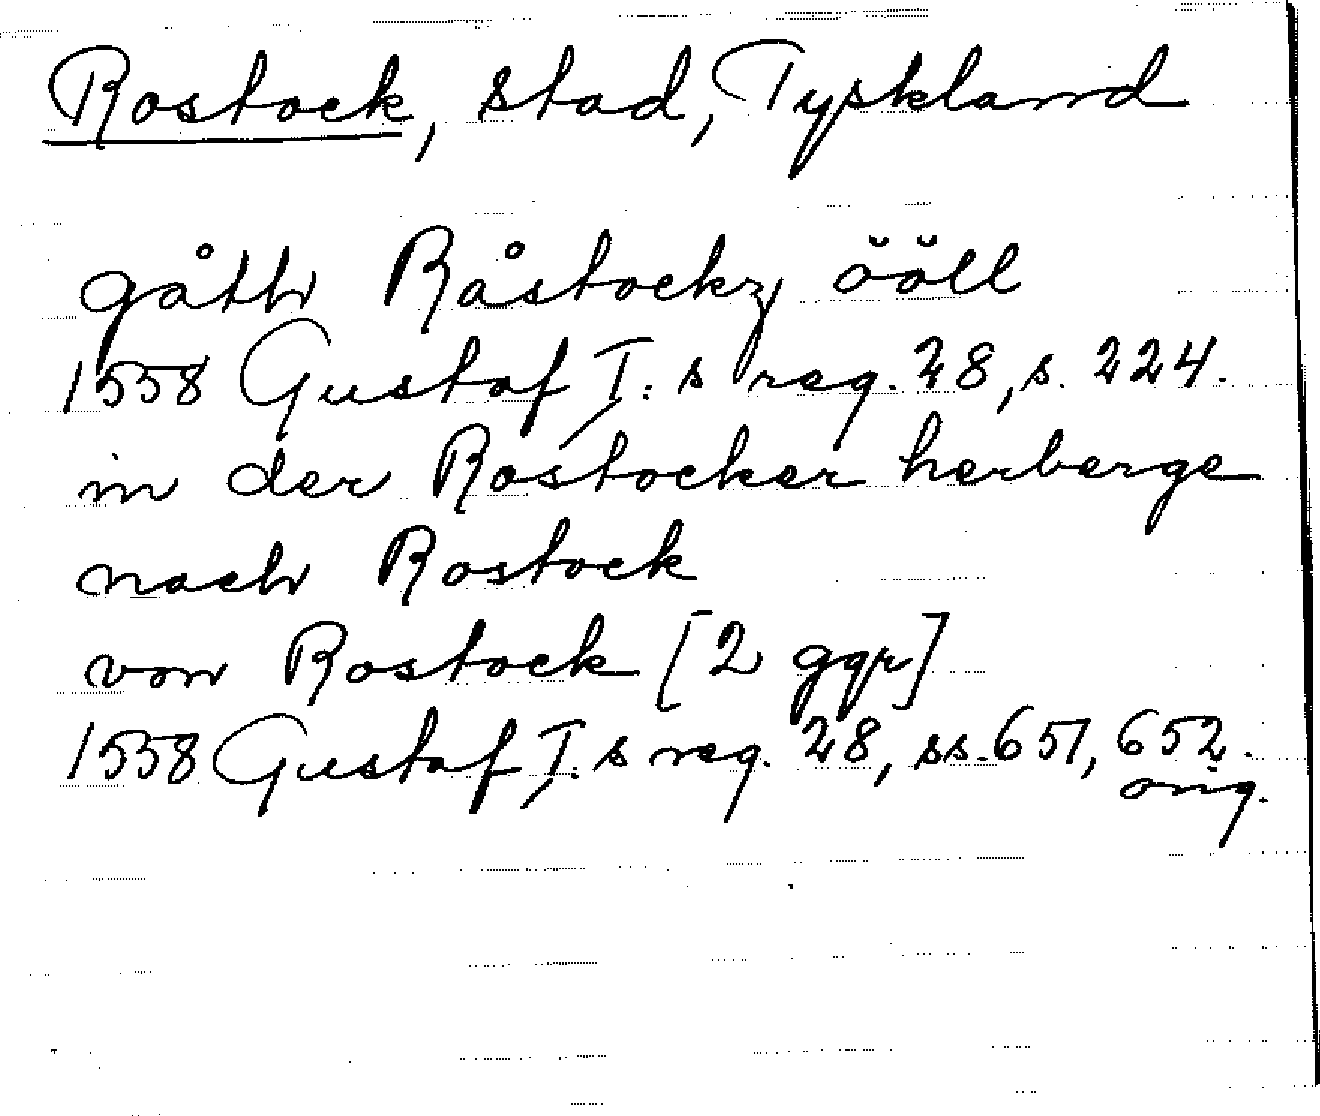 Rostock, stad, Tyskland
gåth Råstockz ööll
1558 Gustaf I: s reg. 28, s. 224.
in der Rostocker herberge
nach Rostock
von Rostock [2 ggr]
1558 Gustaf I: s reg. 28, ss. 651, 652.
orig.